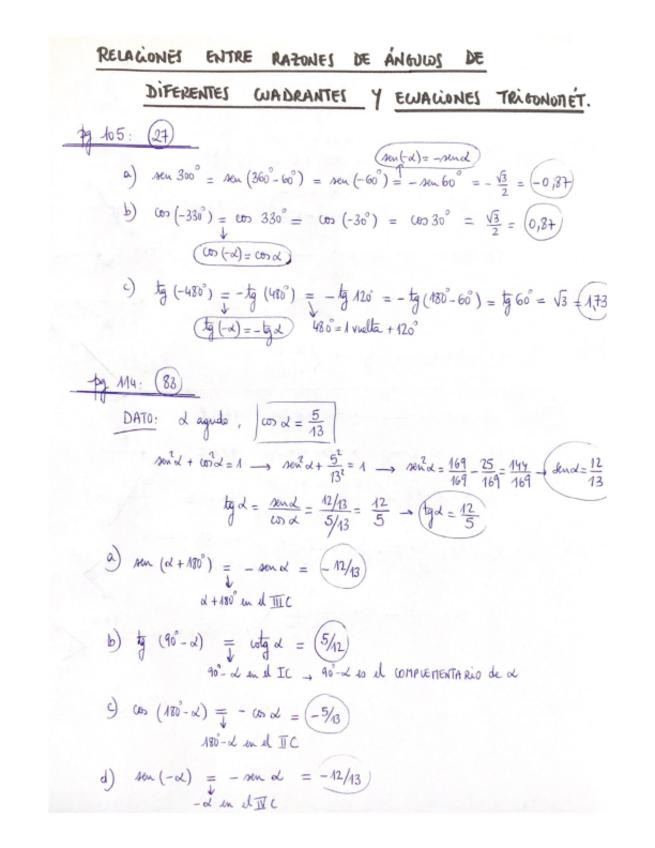 RELACIONES ENTRE RAZONES DE ÁNGULOS DE
DIFERENTES CUADRANTES Y ECUACIONES TRIGONOMÉT.
pg 105: 27
sen(-α) = -senα
a) sen 300° = sen (360°-60°) = sen (-60°) = - sen 60° = - √3/2 = -0,87
b) cos (-330°) = cos 330° = cos (-30°) = cos 30° = √3/2 = 0,87
cos (-α) = cosα
c) tg (-480°) = - tg (480°) = - tg 120° = - tg (180°-60°) = tg 60° = √3 = 1,73
tg (-α) = - tg α 480° = 1 vuelta + 120°
pg 114: 83
DATO: α agudo, cos α = 5/13
sen²α + cos²α = 1 → sen²α + 5²/13² = 1 → sen²α = 169/169 - 25/169 = 144/169 → senα = 12/13
tg α = senα/cos α = 12/13/5/13 = 12/5 → tgα = 12/5
a) sen (α + 180°) = - sen α = - 12/13
α + 180° en el III C
b) tg (90° - α) = cotg α = 5/12
90° - α en el I C → 90° - α es el COMPLEMENTARIO de α
c) cos (180° - α) = - cos α = - 5/13
180° - α en el II C
d) sen (-α) = - sen α = - 12/13
-α en el IV C